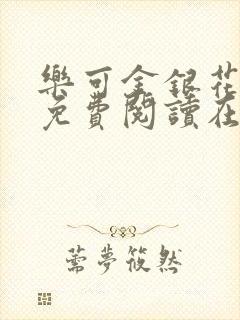 樂可金銀花
免費閱讀在
薷夢筱然